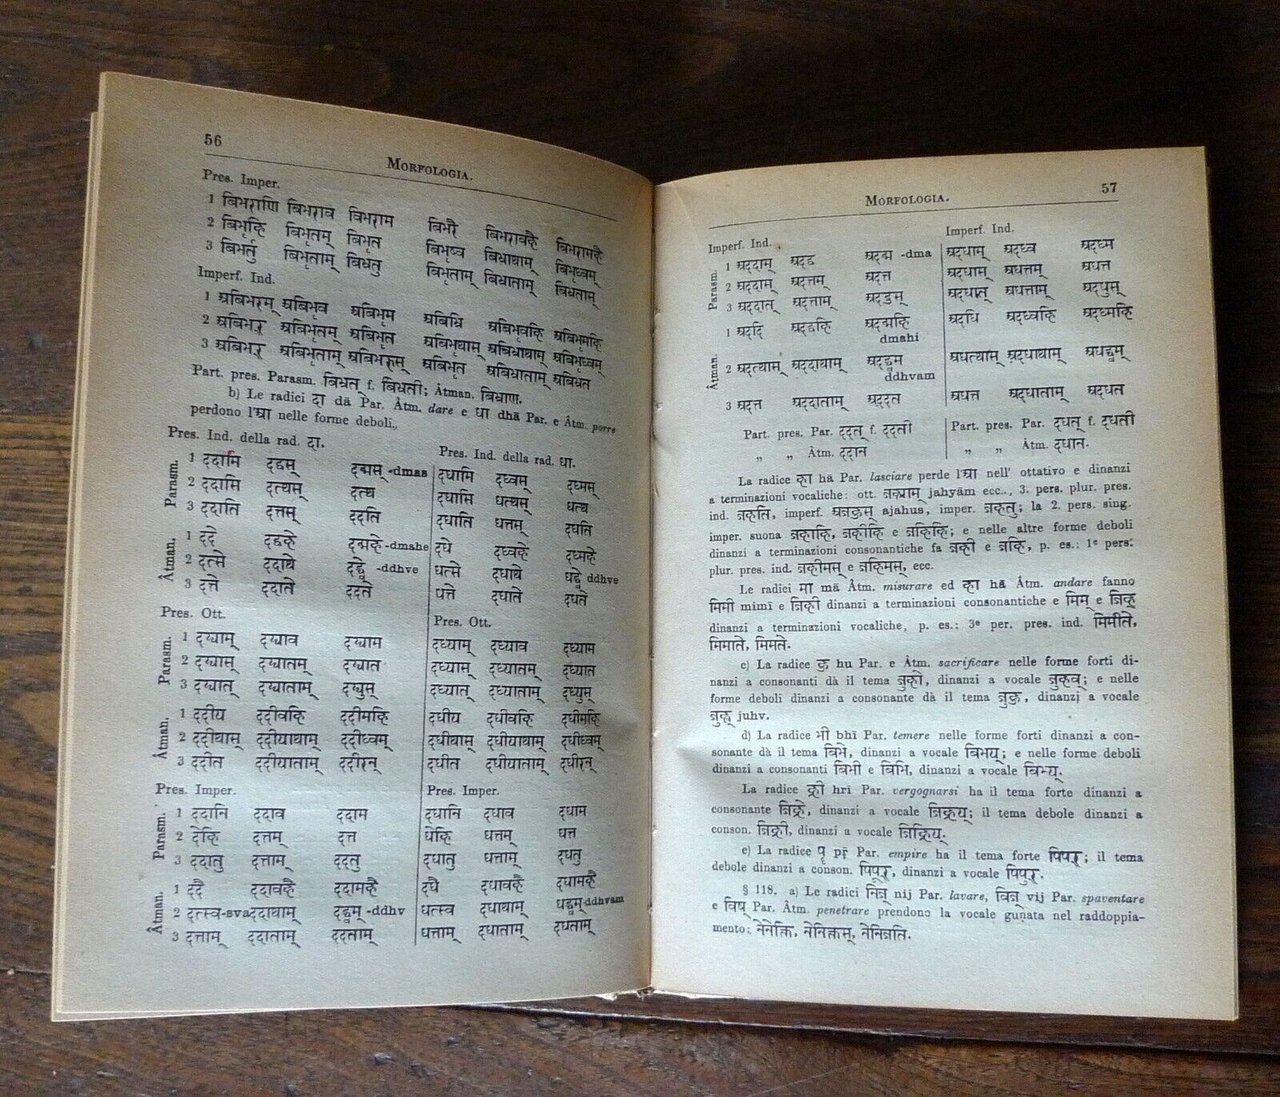 56
MORFOLOGIA.
Pres. Imper.
1 बिभराणि बिभराव बिभराम बिभरै बिभरावहै बिभरामहै
2 बिभृहि बिभृतम् बिभृत बिभृष्व बिभ्राथाम् बिभृध्वम्
3 बिभर्तु बिभृताम् बिभ्रतु बिभृताम् बिभ्राताम् बिभ्रताम्
Imperf. Ind.
1 अबिभरम् अबिभृव अबिभृम अबिभ्रि अबिभृवहि अबिभृमहि
2 अबिभर् अबिभृतम् अबिभृत अबिभृथाम् अबिभ्राथाम् अबिभृध्वम्
3 अबिभर् अबिभृताम् अबिभरुस् अबिभृत अबिभ्राताम् अबिभ्रत
Part. pres. Parasm. बिभ्रत् f. बिभ्रती; Âtman. बिभ्राण.
b) Le radici दा dā Par. Âtm. dare e धा dhā Par. e Âtm. porre
perdono l'आ nelle forme deboli.
Pres. Ind. della rad. दा.
Pres. Ind. della rad. धा.
Parasm.
1 ददामि दद्वस् दद्मस् -dmas दधामि दध्वस् दध्मस्
2 ददासि दत्थस् दत्थ दधासि धत्थस् धत्थ
3 ददाति दत्तस् ददति दधाति धत्तस् दधति
Âtman.
1 ददे दद्वहे दद्महे -dmahe दधे दध्वहे दध्महे
2 दत्से ददाथे दद्ध्वे -ddhve धत्से दधाथे धद्ध्वे ddhve
3 दत्ते ददाते ददते धत्ते दधाते दधते
Pres. Ott.
Pres. Ott.
Parasm.
1 दद्याम् दद्याव दद्याम दध्याम् दध्याव दध्याम
2 दद्यास् दद्यातम् दद्यात दध्यास् दध्यातम् दध्यात
3 दद्यात् दद्याताम् दद्युस् दध्यात् दध्याताम् दध्युस्
Âtman.
1 ददीय ददीवहि ददीमहि दधीय दधीवहि दधीमहि
2 ददीथास् ददीयाथाम् ददीध्वम् दधीथास् दधीयाथाम् दधीध्वम्
3 ददीत ददीयाताम् ददीरन् दधीत दधीयाताम् दधीरन्
Pres. Imper.
Pres. Imper.
Parasm.
1 ददानि ददाव ददाम दधानि दधाव दधाम
2 देहि दत्तम् दत्त धेहि धत्तम् धत्त
3 ददातु दत्ताम् ददतु दधातु धत्ताम् दधतु
Âtman.
1 ददै ददावहै ददामहै दधै दधावहै दधामहै
2 दत्स्व -sva ददाथाम् दद्ध्वम् -ddhv धत्स्व दधाथाम् धद्ध्वम् -ddhvam
3 दत्ताम् ददाताम् ददताम् धत्ताम् दधाताम् दधताम्
MORFOLOGIA.
57
Imperf. Ind.
Imperf. Ind.
Parasm.
1 अददाम् अदद्व अदद्म -dma अदधाम् अदध्व अदध्म
2 अददास् अदत्तम् अदत्त अदधास् अधत्तम् अधत्त
3 अददात् अदत्ताम् अददुस् अदधात् अधत्ताम् अदधुस्
Âtman.
1 अददि अदद्वहि अदद्महि अदधि अदध्वहि अदध्महि
dmahi
2 अदत्थास् अददाथाम् अदद्ध्वम् अधत्थास् अदधाथाम् अधद्ध्वम्
ddhvam
3 अदत्त अददाताम् अददत अधत्त अदधाताम् अदधत
Part. pres. Par. ददत् f. ददती Part. pres. Par. दधत् f. दधती
„ „ Âtm. ददान „ „ Âtm. दधान.
La radice हा hā Par. lasciare perde l'आ nell' ottativo e dinanzi
a terminazioni vocaliche: ott. जह्याम् jahyām ecc., 3. pers. plur. pres.
ind. जहति, imperf. अजहुस् ajahus, imper. जहतु; la 2. pers. sing.
imper. suona जहाहि, जहीहि e जहिहि; e nelle altre forme deboli
dinanzi a terminazioni consonantiche fa जही e जहि, p. es.: 1ª pers.
plur. pres. ind. जहीमस् e जहिमस्, ecc.
Le radici मा mā Âtm. misurare ed हा hā Âtm. andare fanno
मिमी mimī e जिही dinanzi a terminazioni consonantiche e मिम् e जिह्
dinanzi a terminazioni vocaliche, p. es.: 3ª per. pres. ind. मिमीते,
मिमाते, मिमते.
c) La radice हु hu Par. e Âtm. sacrificare nelle forme forti di-
nanzi a consonanti dà il tema जुहो, dinanzi a vocale जुहव्; e nelle
forme deboli dinanzi a consonante dà il tema जुहु, dinanzi a vocale
जुह्व् juhv.
d) La radice भी bhī Par. temere nelle forme forti dinanzi a con-
sonante dà il tema बिभे, dinanzi a vocale बिभय्; e nelle forme deboli
dinanzi a consonanti बिभी e बिभि, dinanzi a vocale बिभ्य्.
La radice ह्री hrī Par. vergognarsi ha il tema forte dinanzi a
consonante जिह्रे, dinanzi a vocale जिह्रय्; il tema debole dinanzi a
conson. जिह्री, dinanzi a vocale जिह्रिय्.
e) La radice पॄ pṝ Par. empire ha il tema forte पिपर्; il tema
debole dinanzi a conson. पिपूर्, dinanzi a vocale पिपुर्.
§ 118. a) Le radici निज् nij Par. lavare, विज् vij Par. spaventare
e विष् Par. Âtm. penetrare prendono la vocale gunata nel raddoppia-
mento: नेनेक्ति, नेनिक्तस्, नेनिजति.